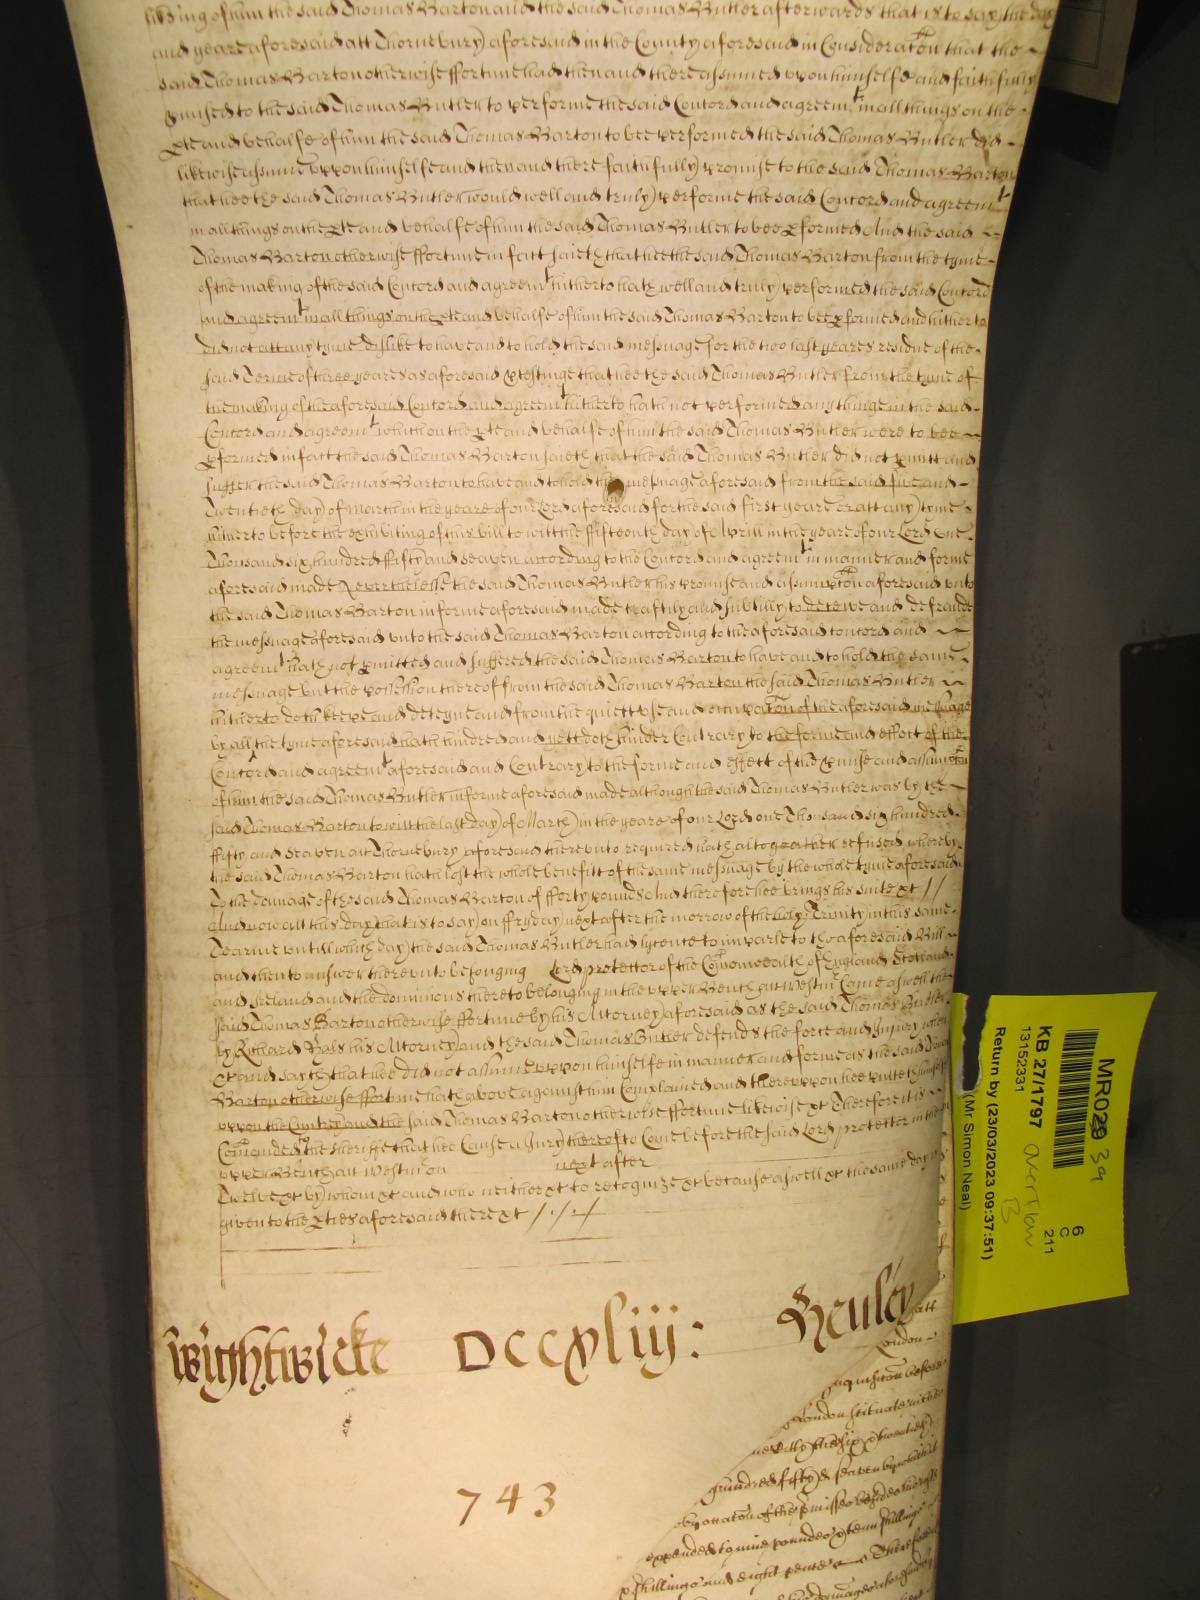 liking of him the said Thomas Barton and the said Thomas Butler afterwards that is to say the day
and yeare aforesaid att Thornebury aforesaid in the County aforesaid in Consideracon that the
said Thomas Barton otherwise ffortune had then and there assumed upon himselfe and faithfully
pmised to the said Thomas Butler to performe the said Concord and agreemt in all things on the
pte and behalfe of him the said Thomas Barton to bee performed the said Thomas Butler did
likewise assume uppon himselfe and then and there faithfully promise to the said Thomas Barton
that hee the said Thomas Butler would well and truly performe the said Concord and agreemt
in all things on the pte and behalfe of him the said Thomas Butler to bee pformed And the said
Thomas Barton otherwise ffortune in fact saieth that hee the said Thomas Barton from the tyme
of the making of the said Concord and agreemt hitherto hath well and truly performed the said Concord
and agreemt in all things on the pte and behalfe of him the said Thomas Barton to bee pformed and hitherto
did not att any tyme dislike to have and to hold the said messuage for the two last yeares residue of the
said Terme of three yeares as aforesaid ptestinge that hee the said Thomas Butler from the tyme of
the making of the aforesaid Concord and agreemt hitherto hath not performed any thinge in the said
Concord and agreemt which on the pte and behalfe of him the said Thomas Butler were to bee
pformed in fact the said Thomas Barton saieth that the said Thomas Butler did not pmitt and
suffer the said Thomas Barton to have and to hold the messuage aforesaid from the said five and
Twentieth day of March in the yeare of our Lord aforesaid for the said first yeare or att any tyme
hitherto before the exhibiting of this bill to witt the fifteenth day of Aprill in the yeare of our Lord One
Thousand six hundred ffifty and seaven according to the Concord and agreemt in manner and forme
aforesaid made Neverthelesse the said Thomas Butler his promise and assumpcon aforesaid unto
the said Thomas Barton in forme aforesaid made craftily and subtilly to deceive and defraude
the messuage aforesaid unto the said Thomas Barton according to the aforesaid concord and
agreemt hath not pmitted and suffered the said Thomas Barton to have and to hold the same
messuage but the possession thereof from the said Thomas Barton the said Thomas Butler
hitherto doth keepe and deteyne and from the quiett use and occupacon of the aforesaid messuage
by all the tyme aforesaid hath hindred and yett doth hinder Contrary to the forme and effect of the
Concord and agreemt aforesaid and Contrary to the forme and effect of the pmise and assumpcon
of him the said Thomas Butler in forme aforesaid made although the said Thomas Butler was by the
said Thomas Barton to witt the last day of March in the yeare of our Lord one Thousand six hundred
ffifty and seaven att Thornebury aforesaid thereunto required hath altogeather refused whereby
the said Thomas Barton hath lost the whole benefitt of the same messuage by the whole tyme aforesaid
To the damage of the said Thomas Barton of fforty pounds And therefore hee brings his suite &c //
And now att this day that is to say on ffryday next after the morrow of the holy Trinity in this same
Tearme untill which day the said Thomas Butler had lycence to imparle to the aforesaid Bill
and then to answer thereunto belonging Lord protector of the Comonwealth of England Scotland
and Ireland and the dominions thereto belonging in the upper Bench att Westmr Came aswell the
said Thomas Barton otherwise ffortune by his Attorney aforesaid as the said Thomas Butler
by Richard his Attorney and the said Thomas Butler defends the force and Injury when
&c and sayth that hee did not assume uppon himselfe in manner and forme as the said
Barton otherwise ffortune hath above against him Complained and thereuppon hee putts himselfe
uppon the Countrey and the said Thomas Barton otherwise ffortune likewise &c Therefore it is
Comanded the Sheriffe that hee Cause a Jury thereof to Come before the said Lord protector in the
upper Bench att Westm on next after
Twelve &c by whom &c and who neither &c to recognize &c because aswell &c the same day is
given to the pties aforesaid there &c / / /
Wightwicke DCCxliij: Henley
743
att
London
Inquisicon before
London scituate
hundred fifty & seaven
by occacon of the pmisses
expended to nyne pounds & tenn shillings
shillings and eight pence Therefore
damages aforesaid
MR029 39
KB 27/1797
13152331
Return by (23/03/2023 09:37:51)
(Mr Simon Neal)
6
C
211
Overflow
B